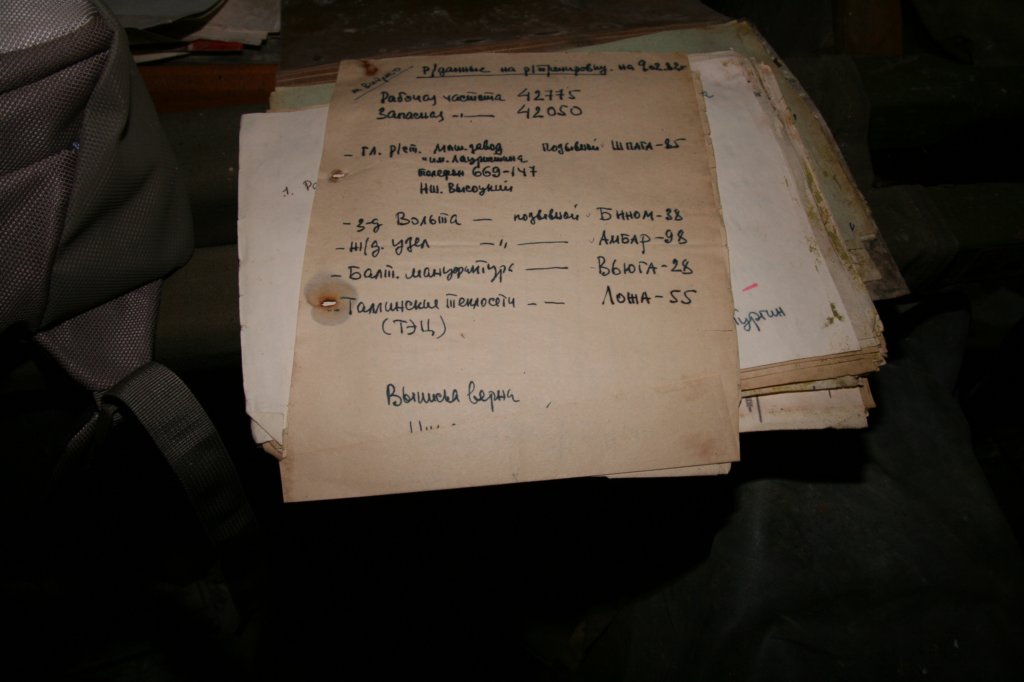 р/данные на р/тренировку на 9.02.82г
Рабочая частота 42775
Запасная -"- 42050
- гл. р/ст. Маш. завод позывной ШПАГА-25
"им. Лауристина
телефон 669-147
НШ. Высоцкий
- з-д Вольта — позывной БИНОМ-38
- ж/д. узел -"- АМБАР-98
- Балт. мануфактура — ВЬЮГА-28
- Таллинские теплосети - - ЛОЖА-55
(ТЭЦ)
Выписка верна
1. Ра